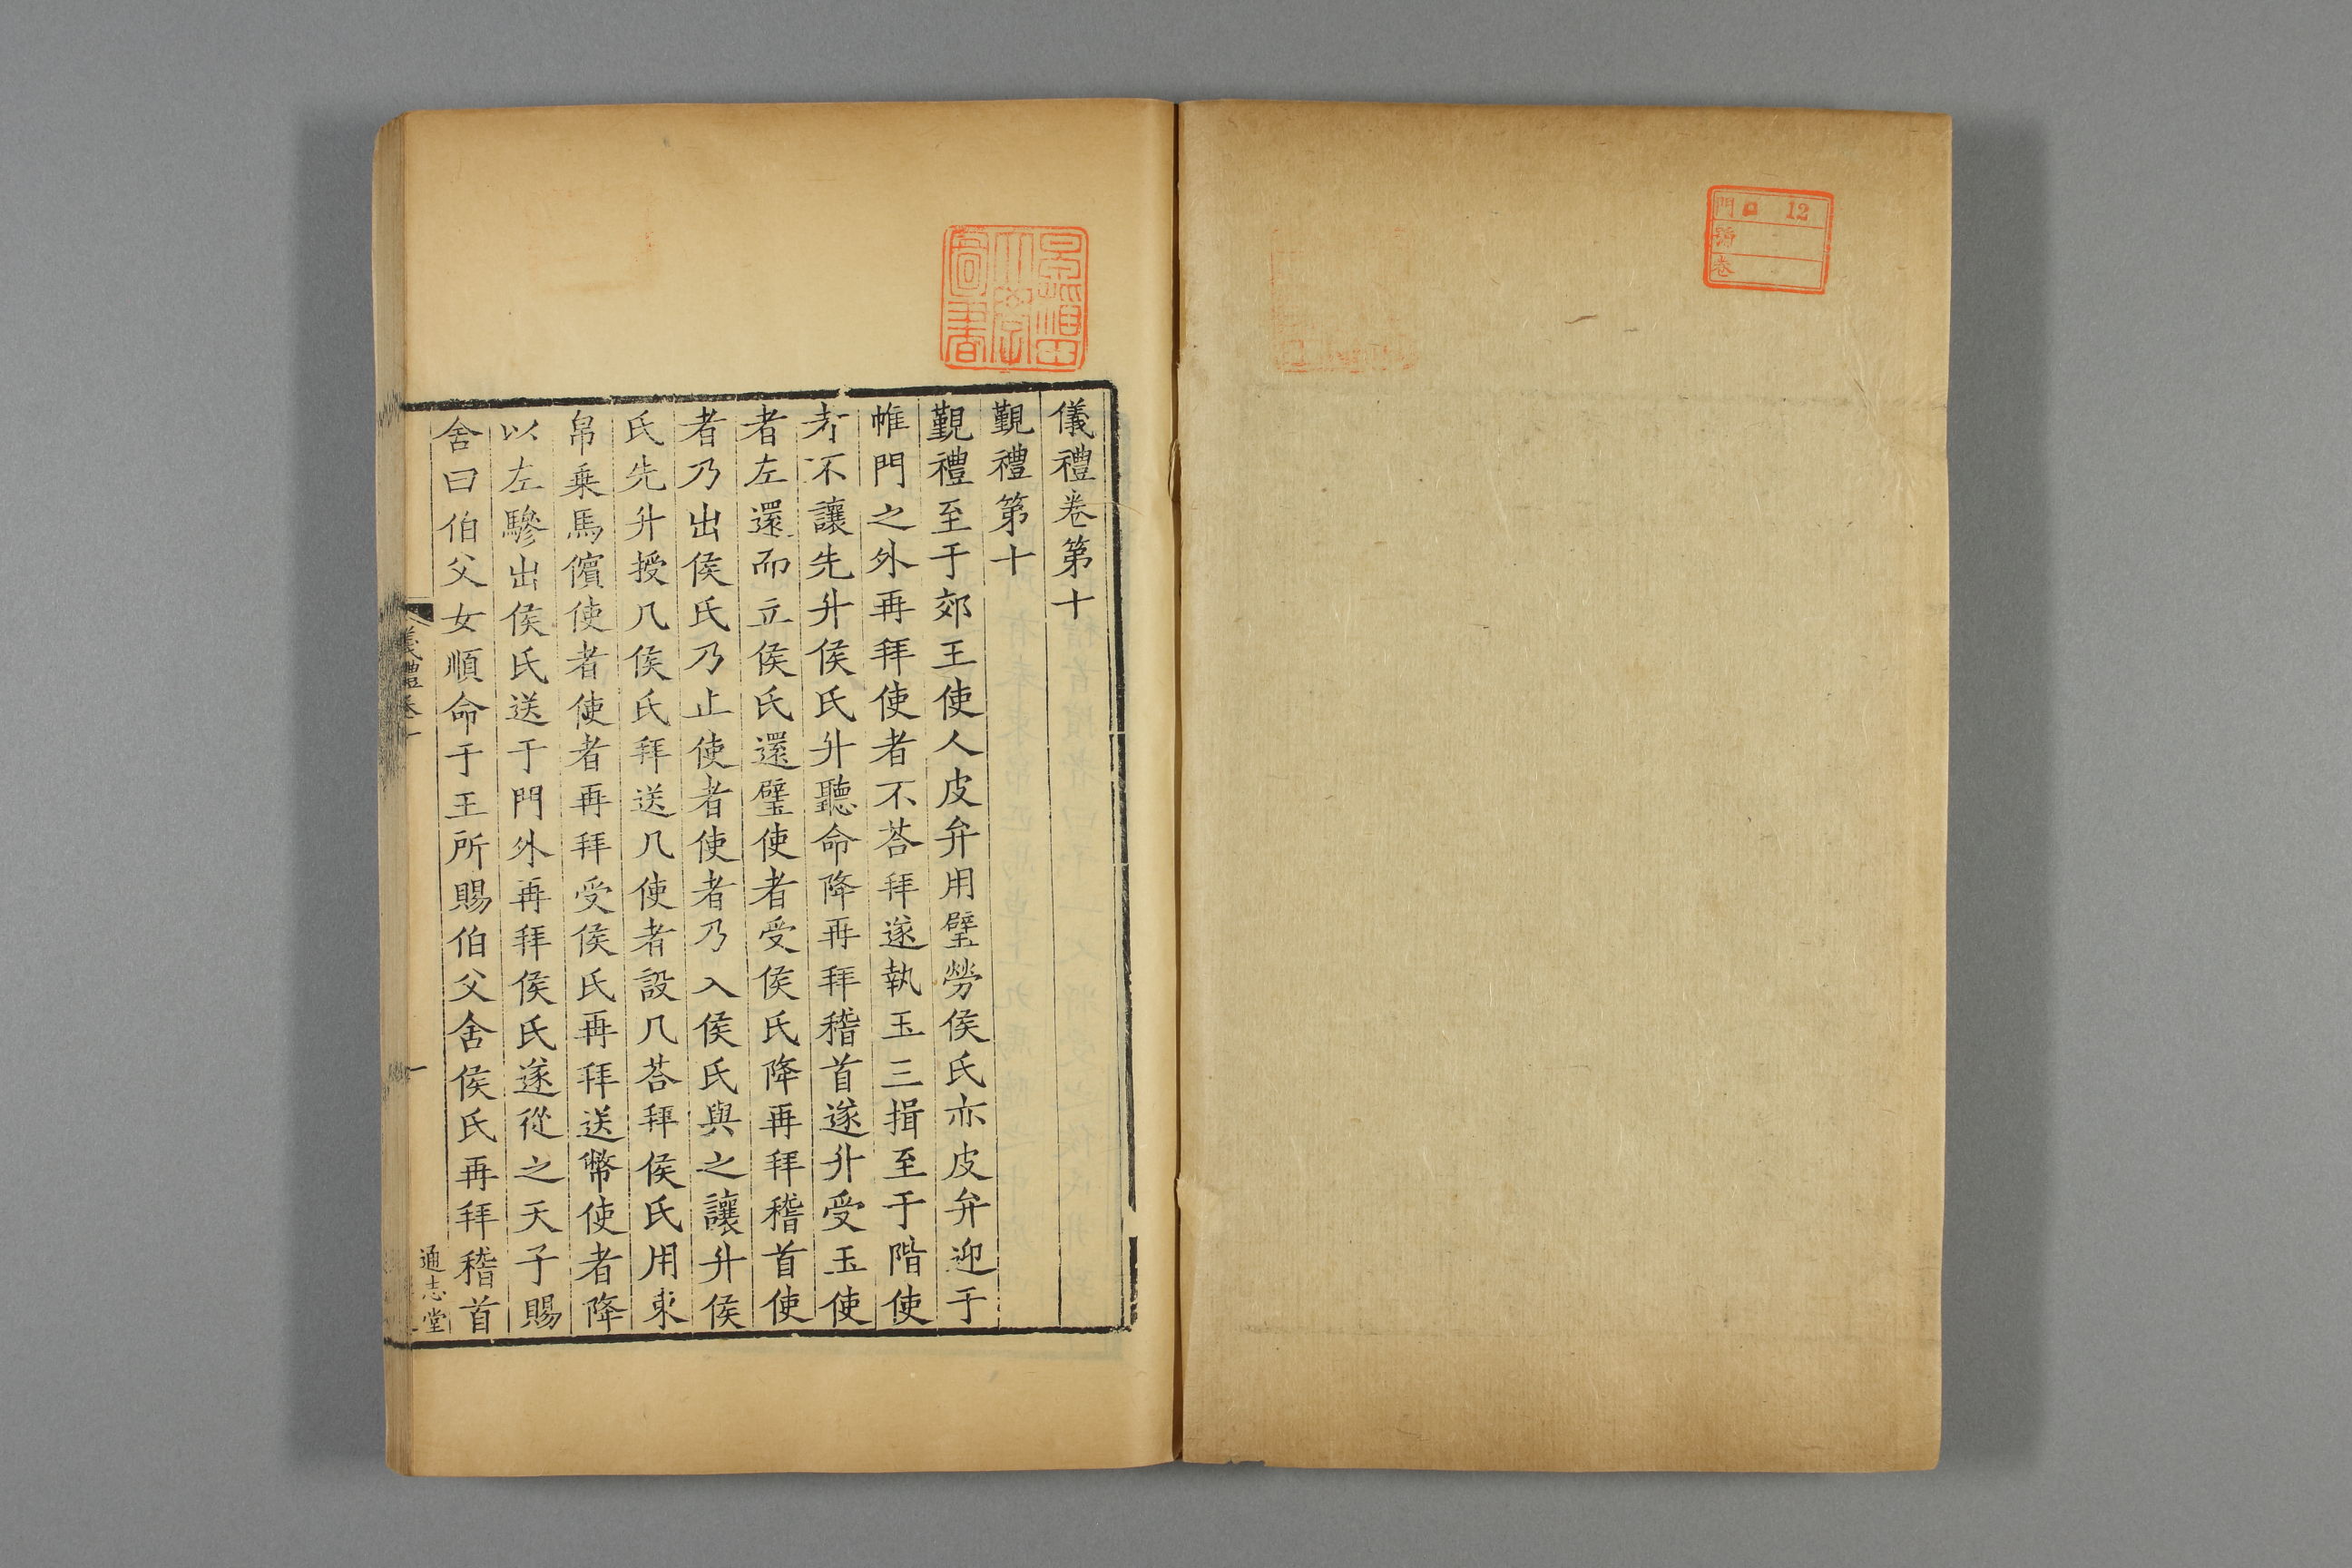 門 ロ 12
號
卷
早稲田大學圖書
儀禮卷第十
覲禮第十
覲禮至于郊王使人皮弁用璧勞侯氏亦皮弁迎于
帷門之外再拜使者不荅拜遂執玉三揖至于階使
者不讓先升侯氏升聽命降再拜稽首遂升受玉使
者左還而立侯氏還璧使者受侯氏降再拜稽首使
者乃出侯氏乃止使者使者乃入侯氏與之讓升侯
氏先升授几侯氏拜送几使者設几荅拜侯氏用束
帛乗馬儐使者使者再拜受侯氏再拜送幣使者降
以左驂出侯氏送于門外再拜侯氏遂從之天子賜
舍曰伯父女順命于王所賜伯父舍侯氏再拜稽首
儀禮卷十
一
通志堂